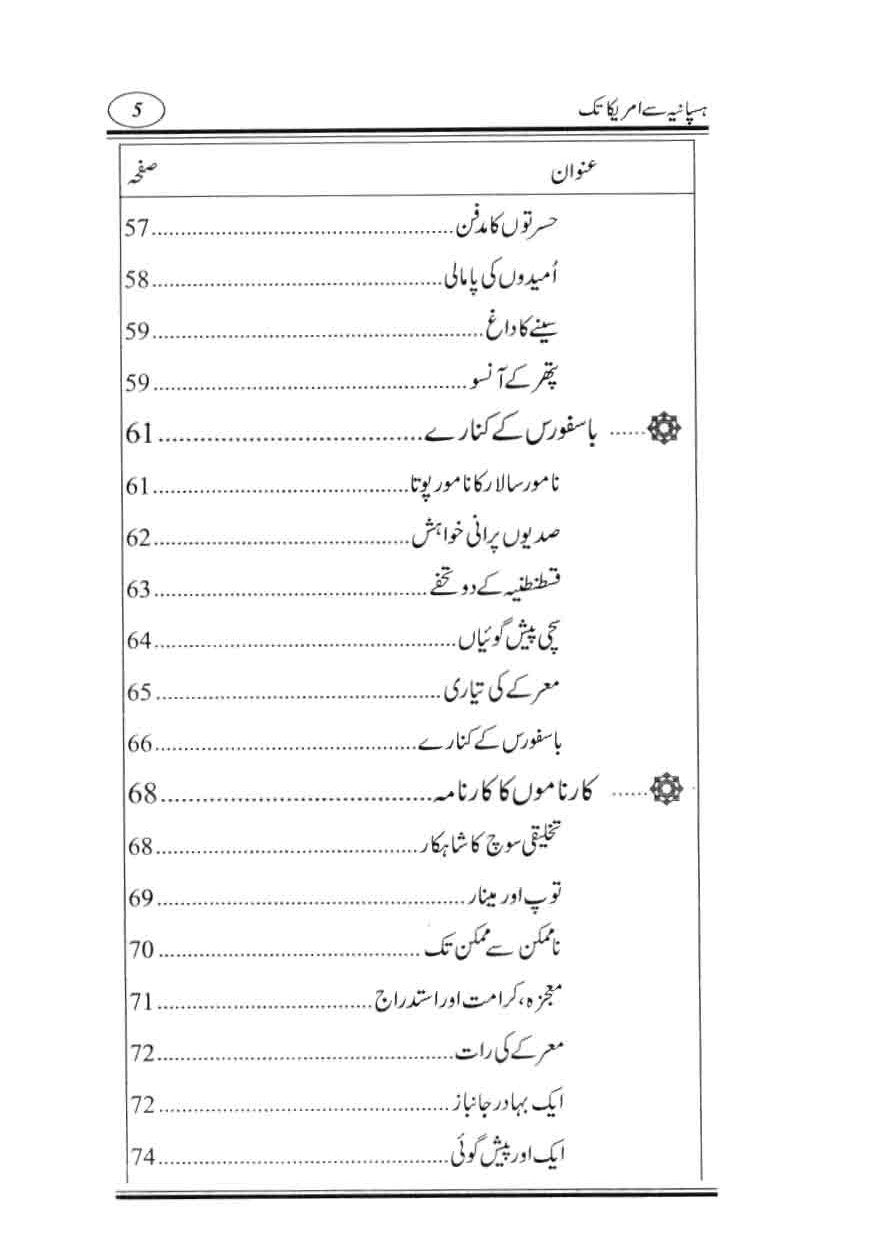 ہسپانیہ سے امریکا تک 5
عنوان صفحہ
حسرتوں کا مدفن.............................................57
اُمیدوں کی پامالی...........................................58
سینے کا داغ.................................................59
پتھر کے آنسو...............................................59
...... باسفورس کے کنارے.................................61
نامور سالار کا نامور پوتا.....................................61
صدیوں پرانی خواہش......................................62
قسطنطنیہ کے دو تحفے........................................63
سچی پیش گوئیاں.............................................64
معرکے کی تیاری...........................................65
باسفورس کے کنارے.......................................66
...... کارناموں کا کارنامہ..................................68
تخلیقی سوچ کا شاہکار.......................................68
توپ اور مینار..............................................69
ناممکن سے ممکن تک.......................................70
معجزہ، کرامت اور استدراج................................71
معرکے کی رات............................................72
ایک بہادر جانباز...........................................72
ایک اور پیش گوئی...........................................74